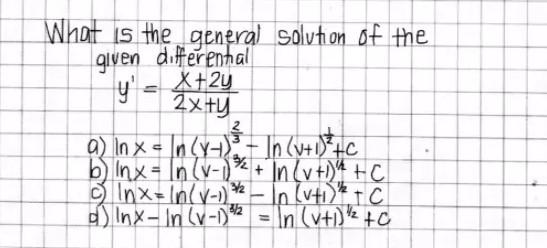 What is the general solution of the
given differential
y' = x+2y / 2x+y
a) ln x = ln (v-1)^2/3 - ln (v+1)^1/2 + C
b) ln x = ln (v-1)^3/2 + ln (v+1)^1/2 + C
c) ln x = ln (v-1)^3/2 - ln (v+1)^1/2 + C
d) ln x - ln (v-1)^3/2 = ln (v+1)^1/2 + C